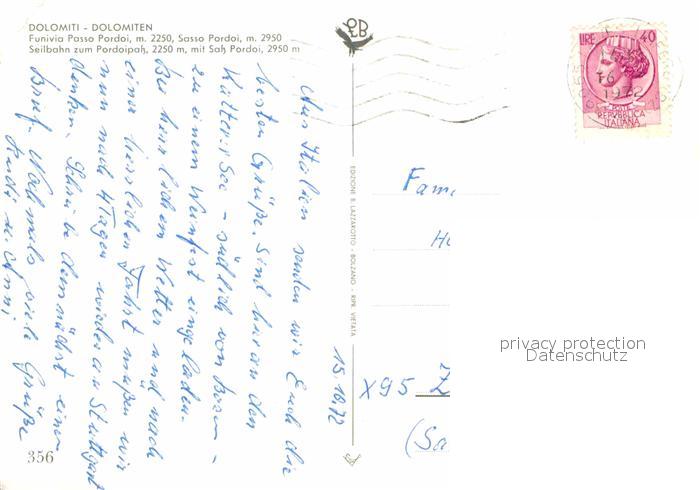 DOLOMITI - DOLOMITEN
Funivia Passo Pordoi, m. 2250, Sasso Pordoi, m. 2950
Seilbahn zum Pordoipaß, 2250 m, mit Saß Pordoi, 2950 m
Aus Italien senden wir Euch die
besten Grüße. Sind hier an den
Kalterer See - südlich von Bozen -
zu einem Weinfest eingeladen.
Bei herrlichem Wetter und nach
einer herrlichen Fahrt mußen wir
nun nach 4 Tagen wieder an Stuttgart
denken. Schreibe demnächst einen
Brief. Nochmals viele Grüße
15.10.72
EDIZIONE B. LAZZAROTTO - BOLZANO - RIPR. VIETATA
LIRE 40
POSTE
REPVBBLICA
ITALIANA
1972
Fam
X95
(Sa
privacy protection
Datenschutz
356